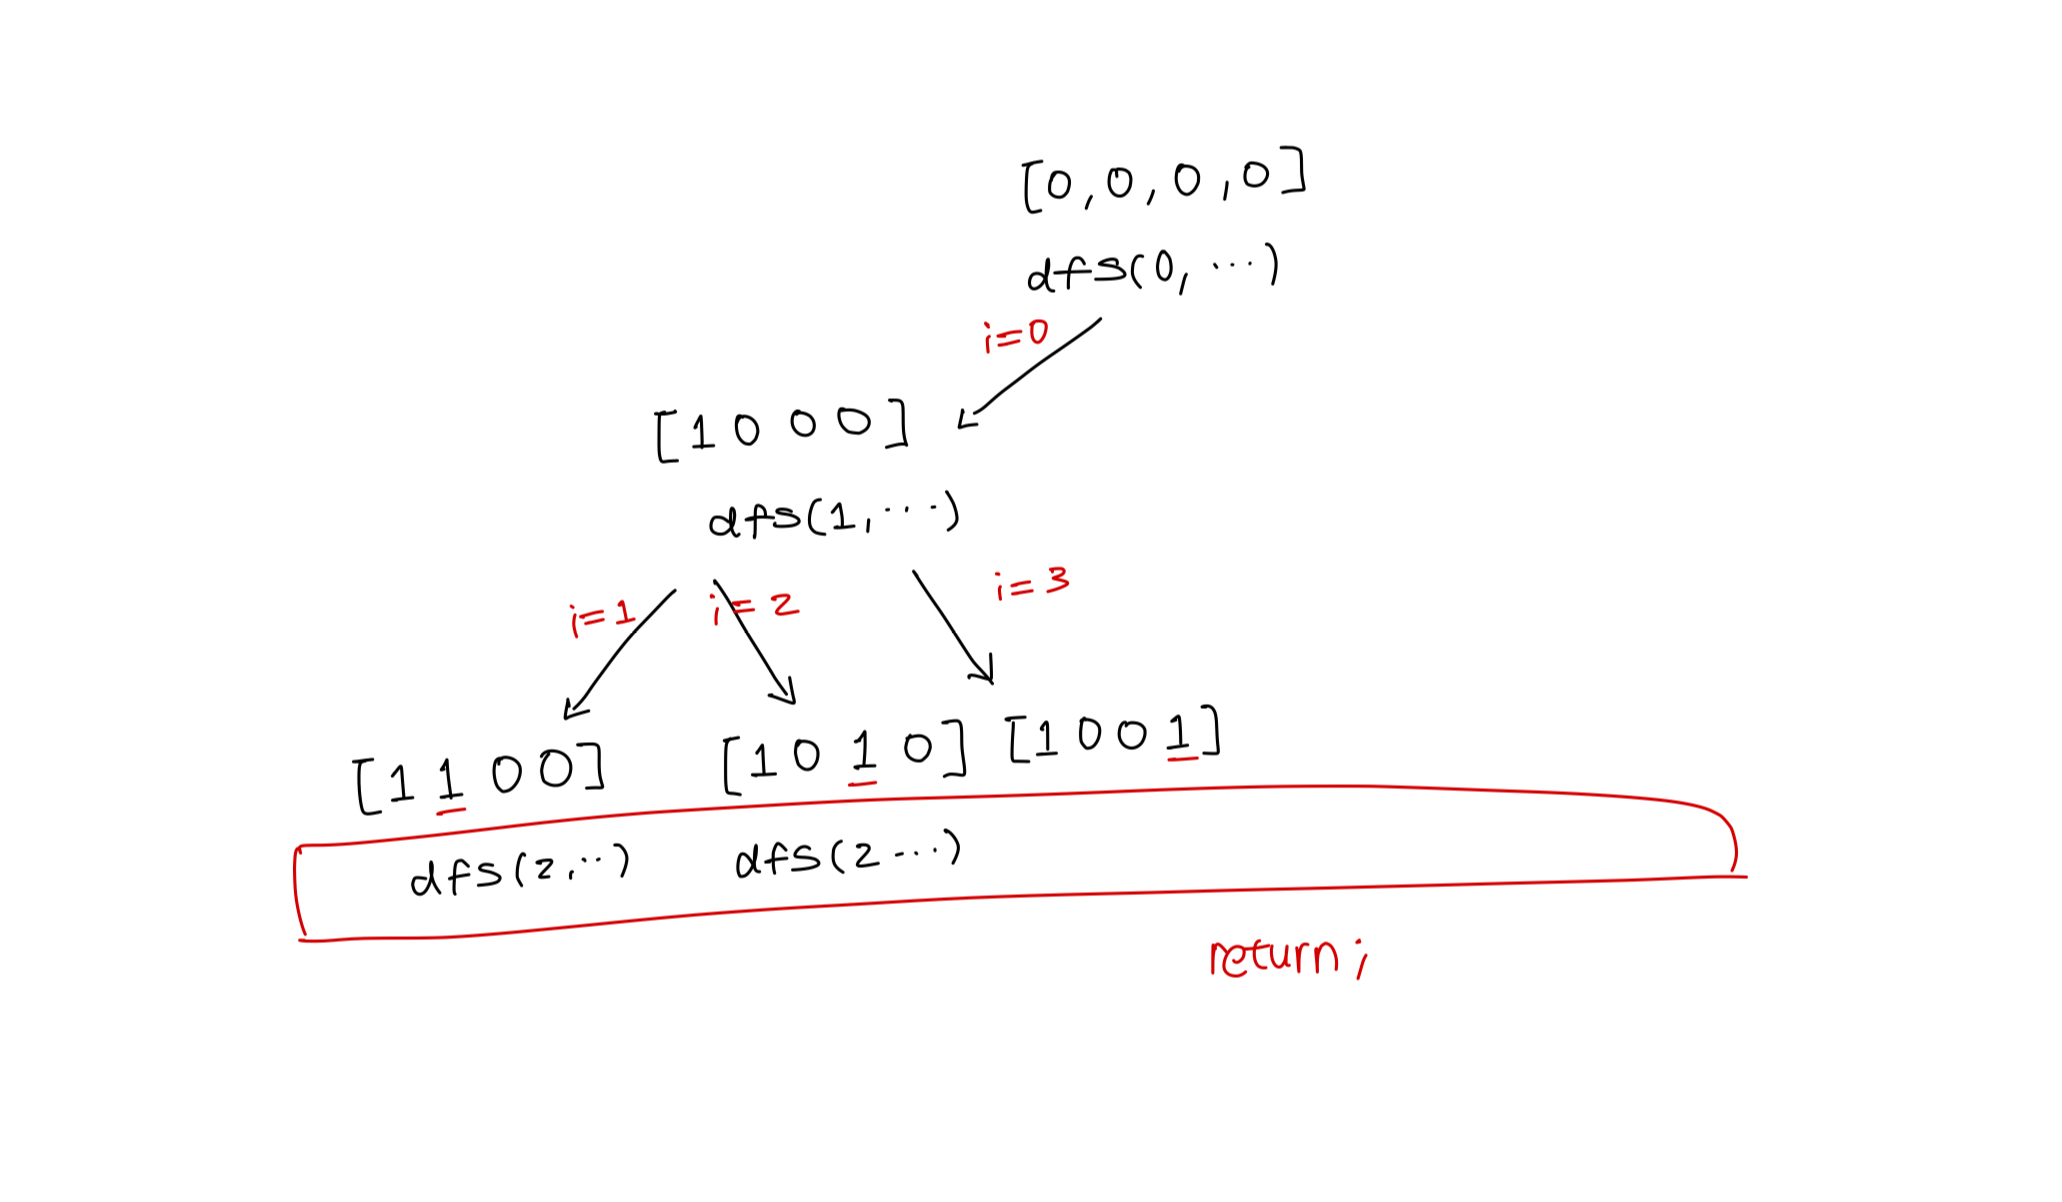 [0,0,0,0]
dfs(0, ...)
i=0
[1 0 0 0]
dfs(1, ...)
i=1 i=2 i=3
[1 1 0 0] [1 0 1 0] [1 0 0 1]
dfs(2, ..) dfs(2 ...)
return;